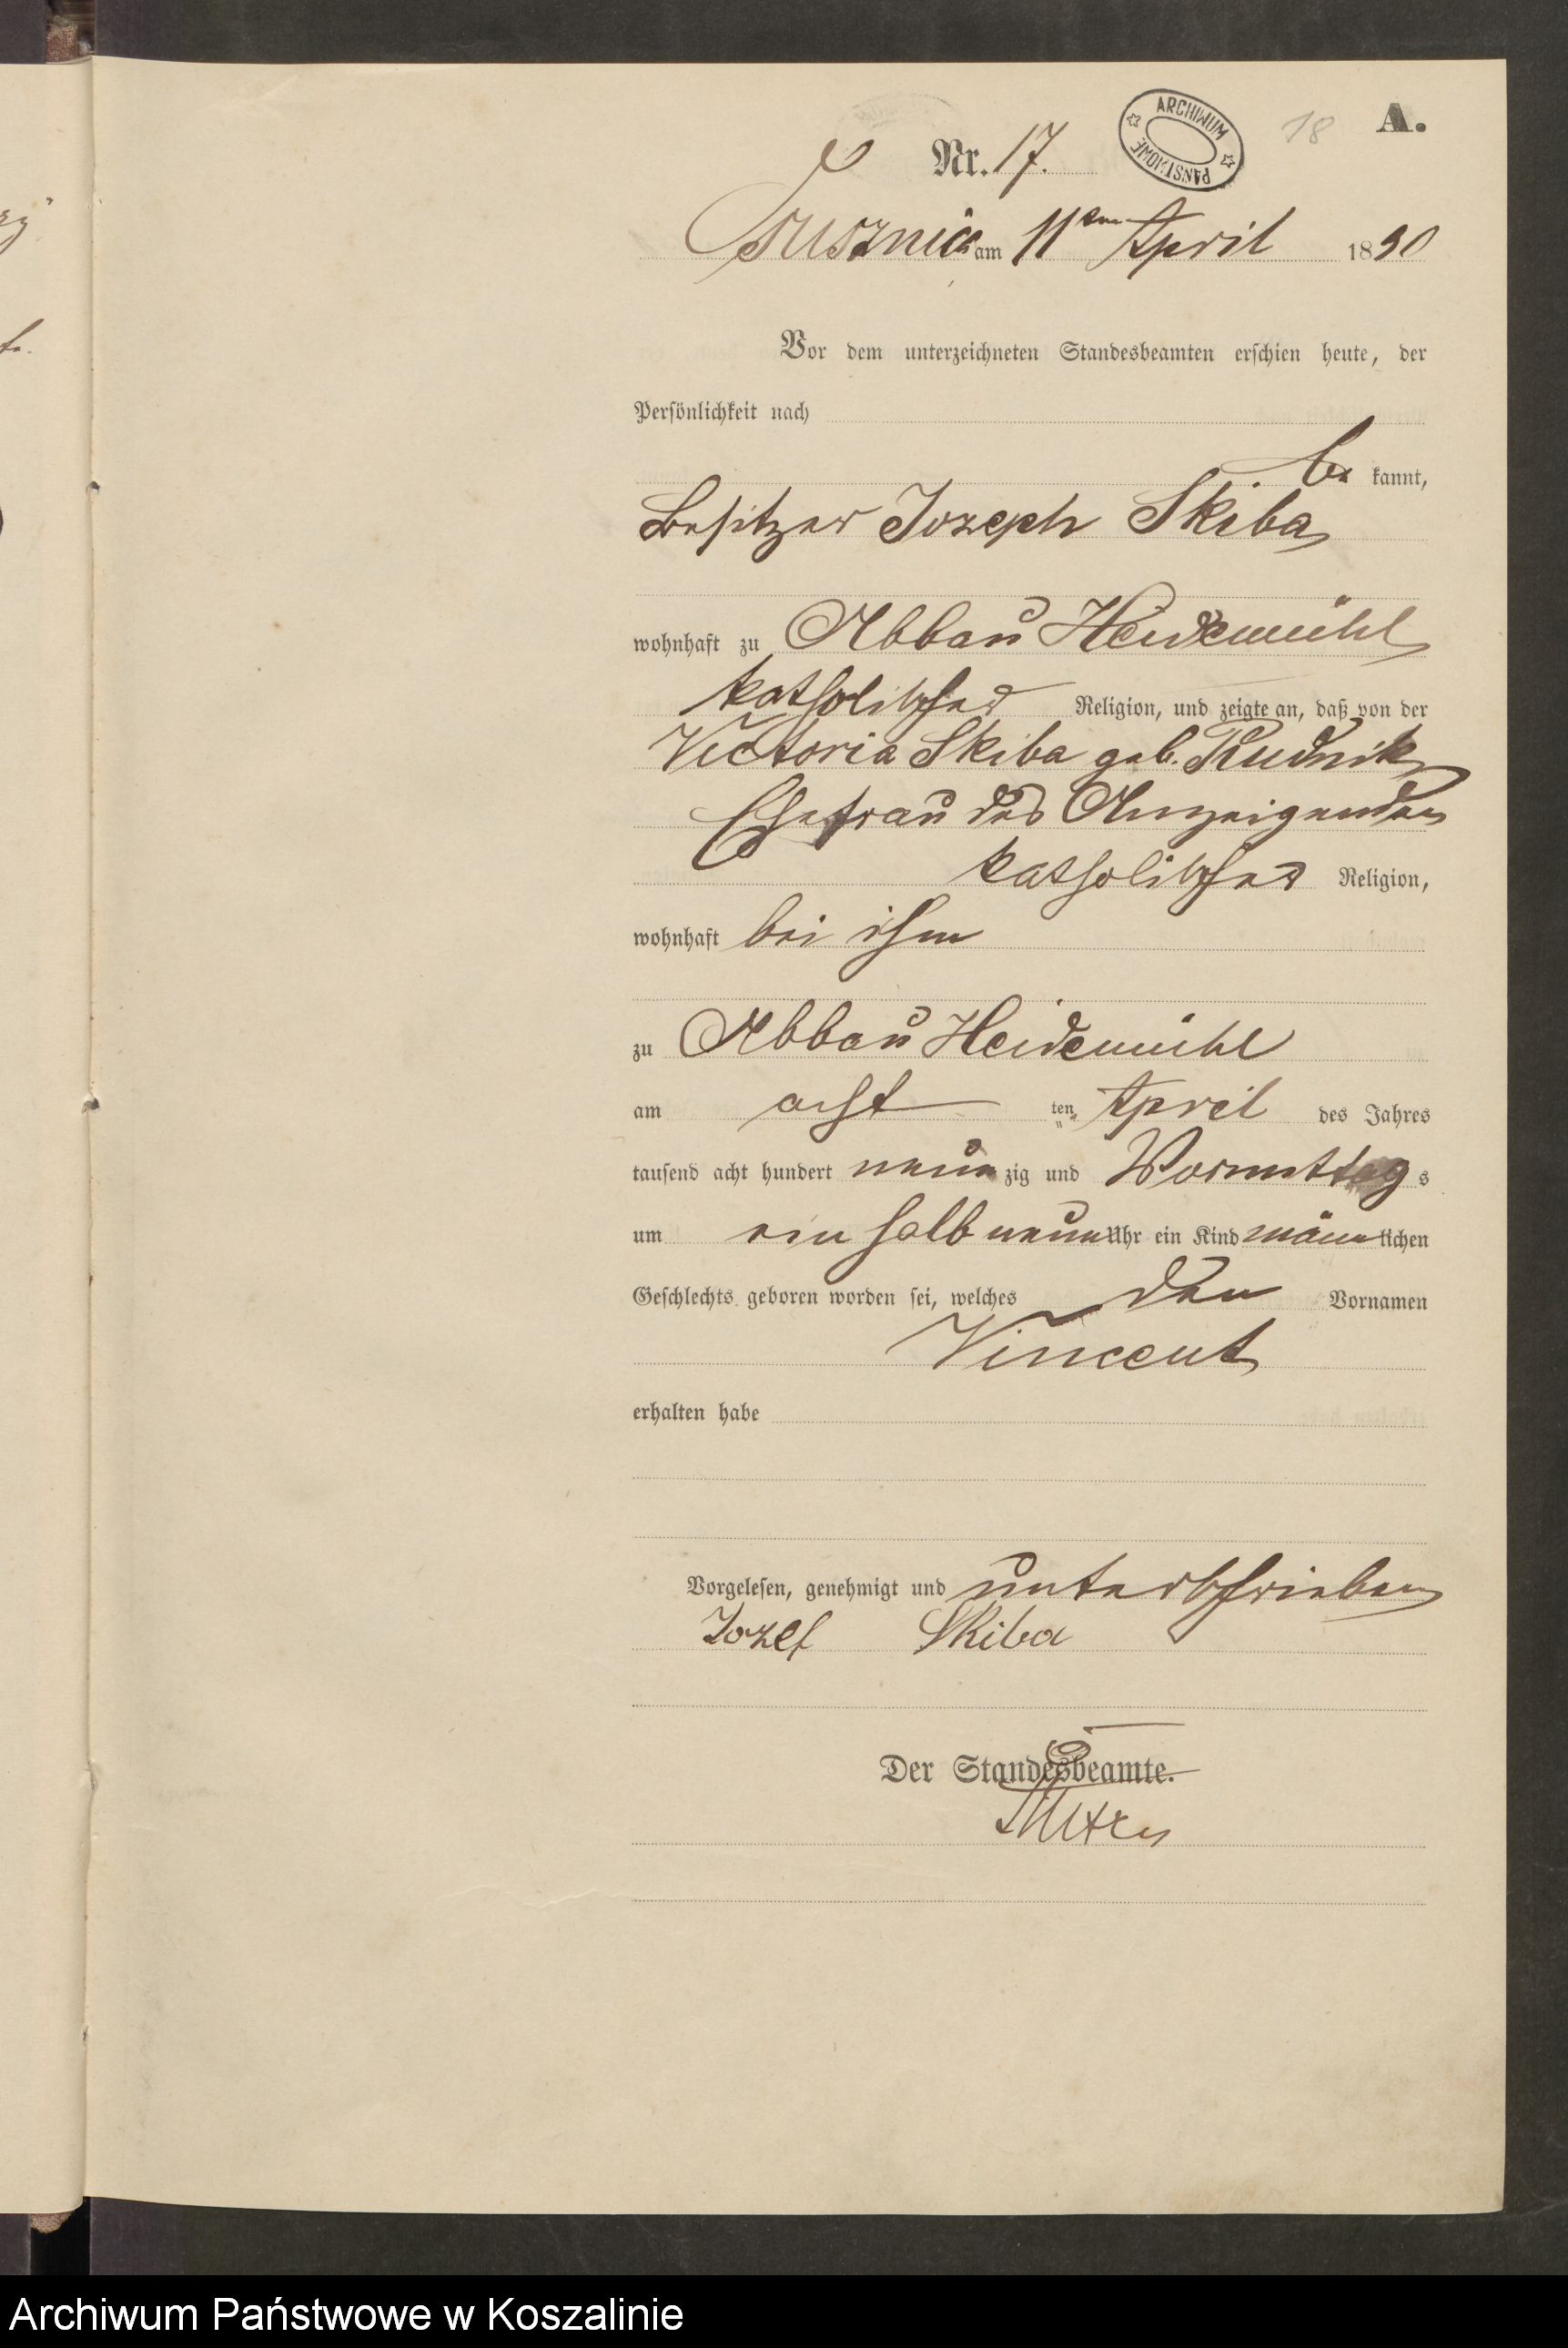 A.
18
ARCHIWUM PAŃSTWOWE
Nr. 17.
am 11ten April 1890
Vor dem unterzeichneten Standesbeamten erschien heute, der
Persönlichkeit nach
be kannt,
Besitzer Joseph Skiba
wohnhaft zu Abbau Heidemühl
katholischer Religion, und zeigte an, daß von der
Victoria Skiba geb. Rudnik
Ehefrau des Anzeigenden
katholischer Religion,
wohnhaft bei ihm
zu Abbau Heidemühl
am acht ten April des Jahres
tausend acht hundert neun zig und Vormittag s
um ein halb neun Uhr ein Kind männ lichen
Geschlechts geboren worden sei, welches den Vornamen
Vincent
erhalten habe
Vorgelesen, genehmigt und unterschrieben
Jozef Skiba
Der Standesbeamte.
Archiwum Państwowe w Koszalinie